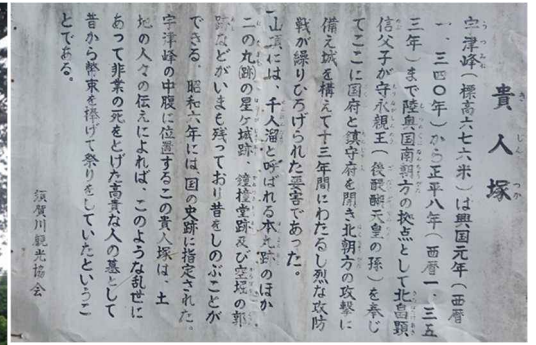 貴人塚
き じん づか
宇津峰(標高六七六米)は興国元年(西暦
一、三四〇年)から正平八年(西暦一、三五
三年)まで陸奥国南朝方の拠点として北畠顕
信父子が守永親王(後醍醐天皇の孫)を奉じ
てここに国府と鎮守府を開き北朝方の攻撃に
備え城を構えて十三年間にわたるし烈な攻防
戦が繰りひろげられた要害であった。
山頂には、千人溜と呼ばれる本丸跡のほか
二の丸跡の星ヶ城跡、鐘撞堂跡及び空堀の郭
跡などがいまも残っており昔をしのぶことが
できる。昭和六年には、国の史跡に指定された。
宇津峰の中腹に位置するこの貴人塚は、土
地の人々の伝えによれば、このような乱世に
あって非業の死をとげた高貴な人の墓として
昔から幣束を捧げて祭りをしていたというこ
とである。
須賀川観光協会